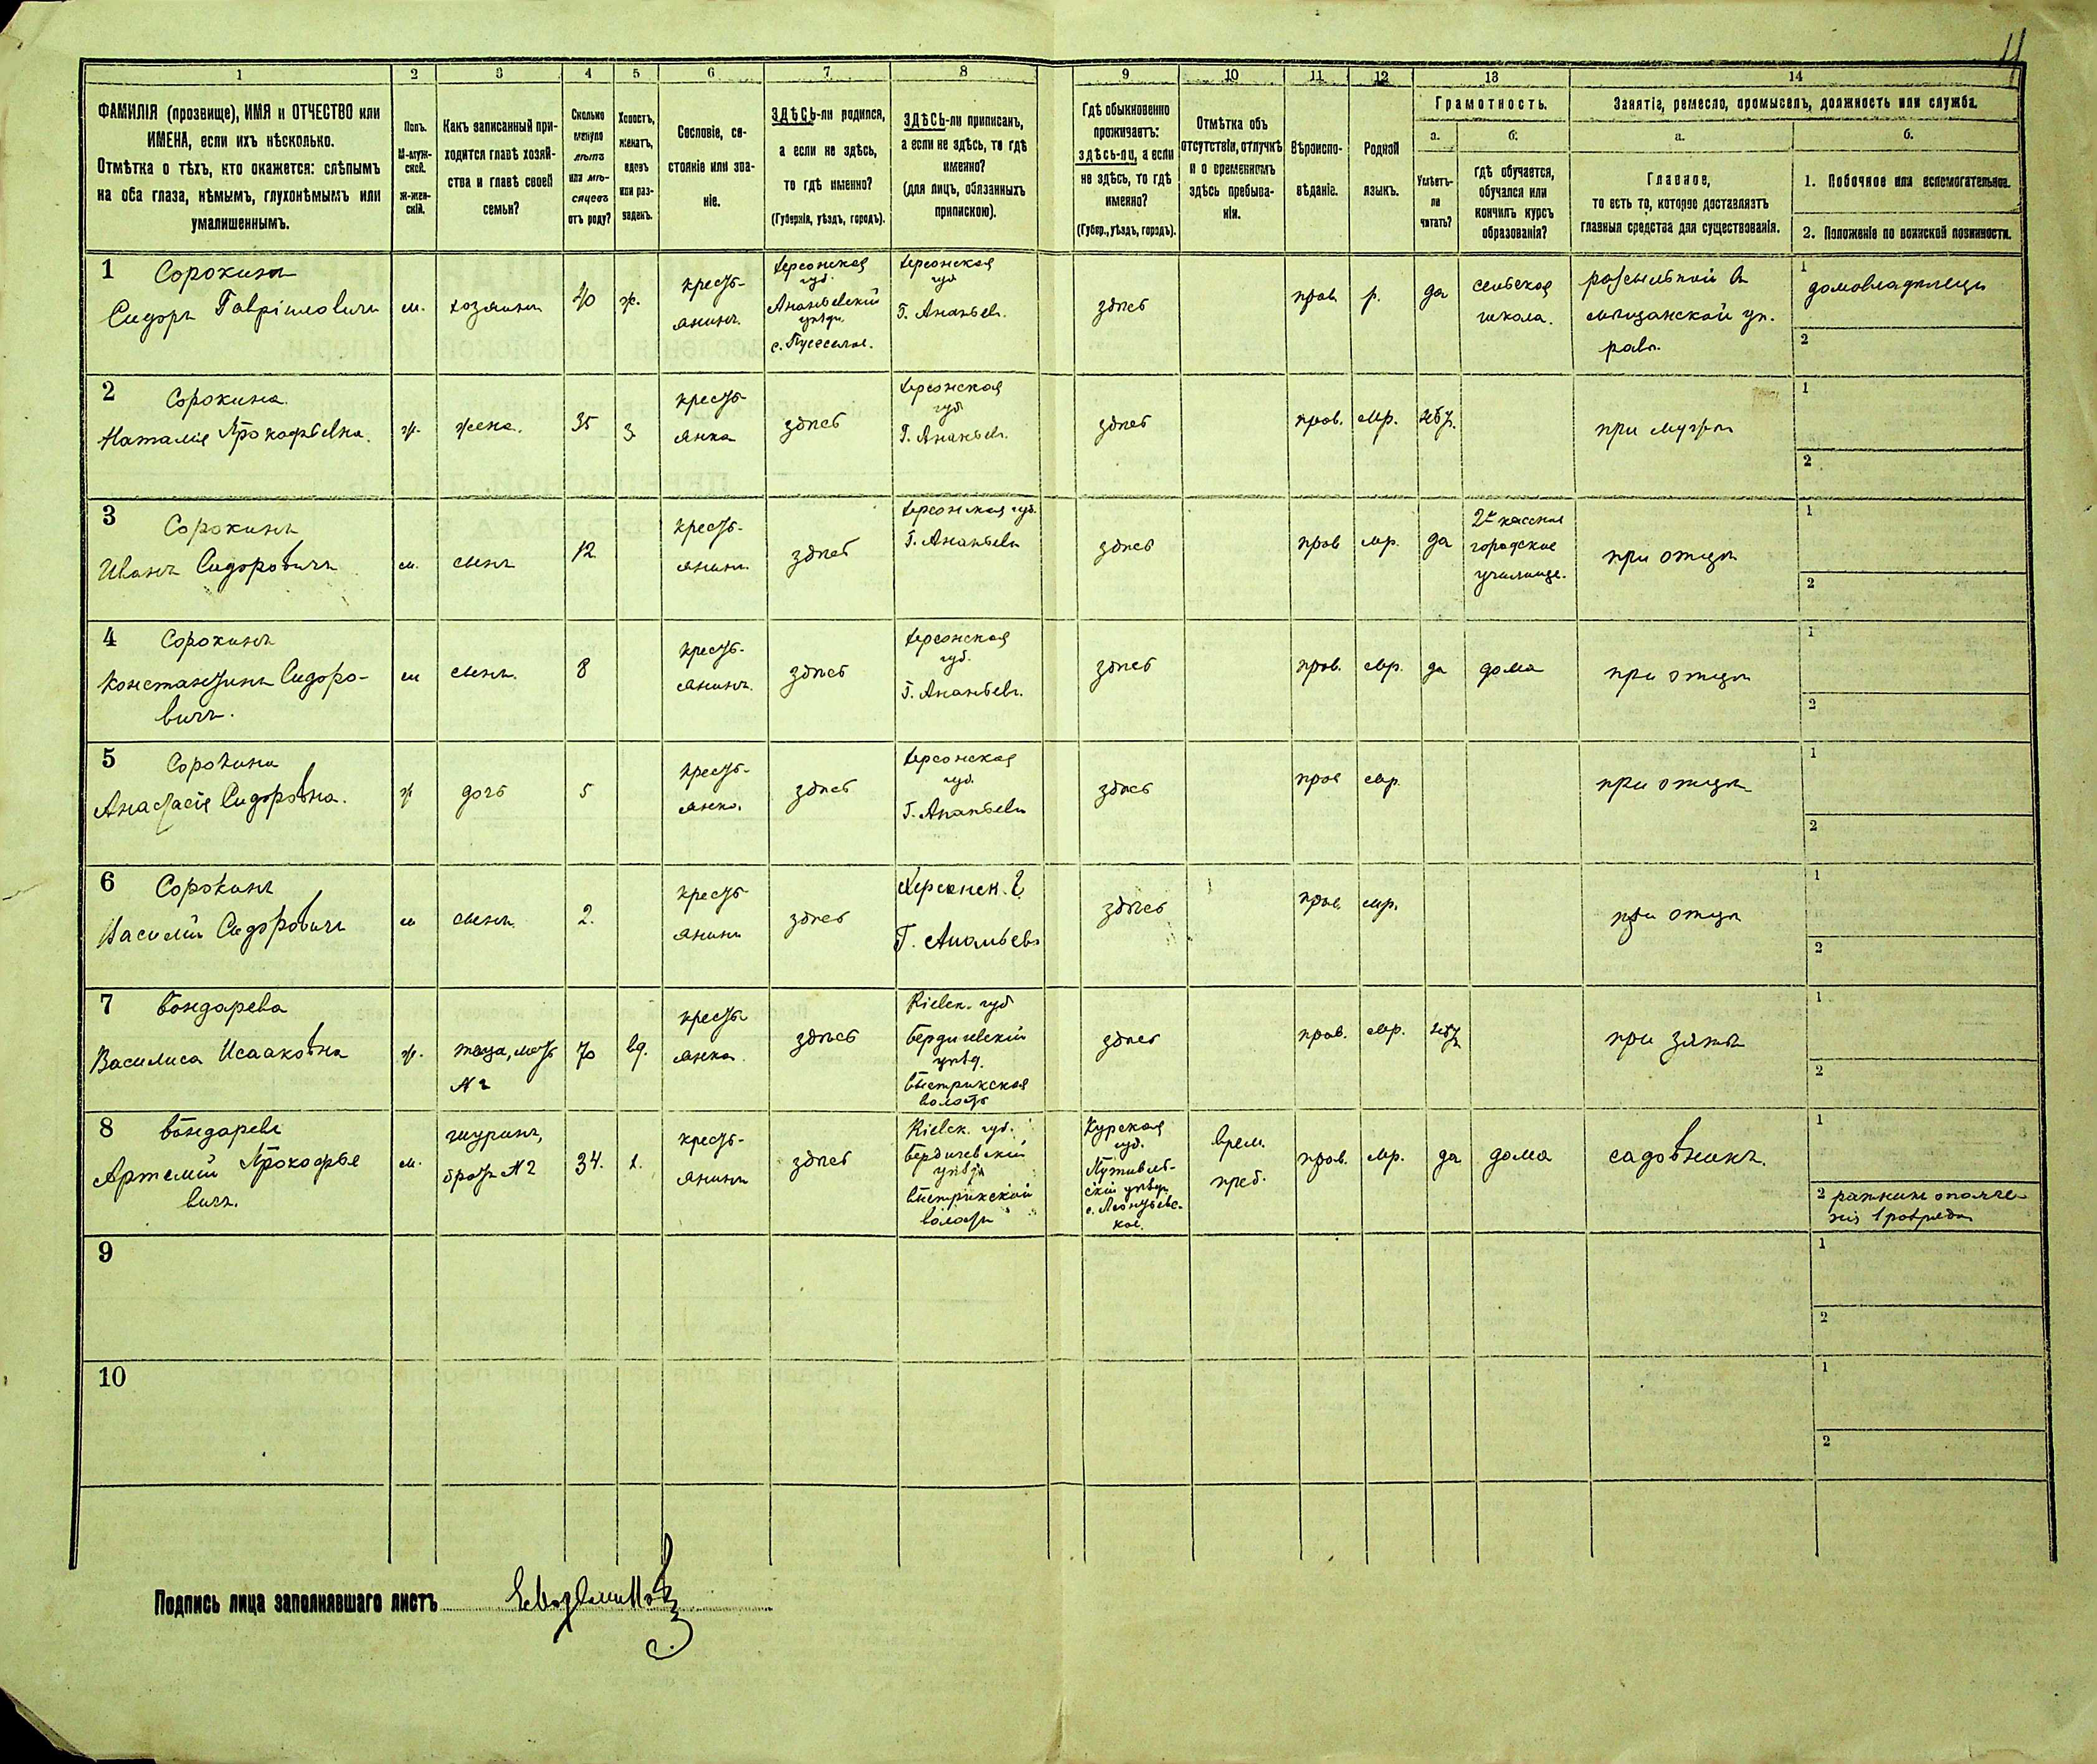 11
1 2 3 4 5 6 7 8 9 10 11 12 13 14
ФАМИЛІЯ (прозвище), ИМЯ и ОТЧЕСТВО или
ИМЕНА, если ихъ нѣсколько.
Отмѣтка о тѣхъ, кто окажется: слѣпымъ
на оба глаза, нѣмымъ, глухонѣмымъ или
умалишеннымъ.
Полъ.
М-муж-
ской.
Ж-жен-
скій.
Какъ записанный при-
ходится главѣ хозяй-
ства и главѣ своей
семьи?
Сколько
минуло
лѣтъ
или мѣ-
сяцевъ
отъ роду?
Холостъ,
женатъ,
вдовъ
или раз-
веденъ.
Сословіе, со-
стояніе или зва-
ніе.
ЗДѢСЬ-ли родился,
а если не здѣсь,
то гдѣ именно?
(Губернія, уѣздъ, городъ).
ЗДѢСЬ-ли приписанъ,
а если не здѣсь, то гдѣ
именно?
(для лицъ, обязанныхъ
припискою).
Гдѣ обыкновенно
проживаетъ:
здѣсь-ли, а если
не здѣсь, то гдѣ
именно?
(Губер., уѣздъ, городъ).
Отмѣтка объ
отсутствіи, отлучкѣ
и о временномъ
здѣсь пребыва-
ніи.
Вѣроиспо-
вѣданіе.
Родной
языкъ.
Грамотность.
а.
Умѣетъ-
ли
читать?
б.
гдѣ обучается,
обучался или
кончилъ курсъ
образованія?
Занятіе, ремесло, промыселъ, должность или служба.
а.
Главное,
то есть то, которое доставляетъ
главныя средства для существованія.
б.
1. Побочное или вспомогательное.
2. Положеніе по воинской повинности.
1 Сорокинъ
Сидоръ Гавріиловичъ
м.
хозяинъ
40
ж.
кресть-
янинъ.
Херсонская
губ.
Ананьевскій
уѣздъ.
Херсонская
губ
Г. Ананьев.
здѣсь
прав
р.
да
сельская
школа.
мѣщанской уп.
рав.
1
домовладѣлецъ
2
2 Сорокина.
Наталія Прокофьевна.
ж.
жена.
35
з.
кресть
янка
здѣсь
Херсонская
губ
Г. Ананьев.
здѣсь
прав.
мр.
при мужѣ
1
2
3 Сорокинъ
Иванъ Сидоровичъ
м.
сынъ
12
кресть-
янинъ
здѣсь
Херсонская губ.
Г. Ананьевъ
здѣсь
прав
мр.
да
2х классное
городское
училище.
при отцѣ
1
2
4 Сорокинъ
Константинъ Сидоро-
вичъ.
м
сынъ.
8
кресть-
янинъ.
здѣсь
Херсонская
губ.
Г. Ананьевъ.
здѣсь
прав.
мр.
да
дома
при отцѣ
1
2
5 Сорокина
Анастасія Сидоровна.
ж
дочь
5
кресть-
янка.
здѣсь
Херсонская
губ.
Г. Ананьевъ
здѣсь
прав
мр.
при отцѣ
1
2
6 Сорокинъ
Василій Сидоровичъ
м
сынъ
2.
кресть
янинъ
здѣсь
Херсонск. г.
Г. Ананьевъ
здѣсь
прав.
мр.
при отцѣ
1
2
7 Бондарева
Василиса Исааковна
ж.
теща, мать
№2
70
вд.
кресть
янка
здѣсь
Кіевск. губ
Бердичевскій
уѣзд.
Быстрикская
волость
здѣсь
прав.
мр.
при зятѣ
1
2
8 Бондаревъ
Артемій Прокофье
вичъ.
м.
шуринъ,
братъ №2
34.
х.
кресть-
янинъ
здѣсь
Кіевск. губ.
Бердичевскій
уѣздъ
Быстрикской
волости
Курская
губ.
Путивль-
скій уѣздъ
врем.
преб.
прав.
мр.
да
дома
садовникъ.
1
2 ратникъ ополче-
нія 1 разряда
9
1
2
10
1
2
Подпись лица заполнявшаго листъ